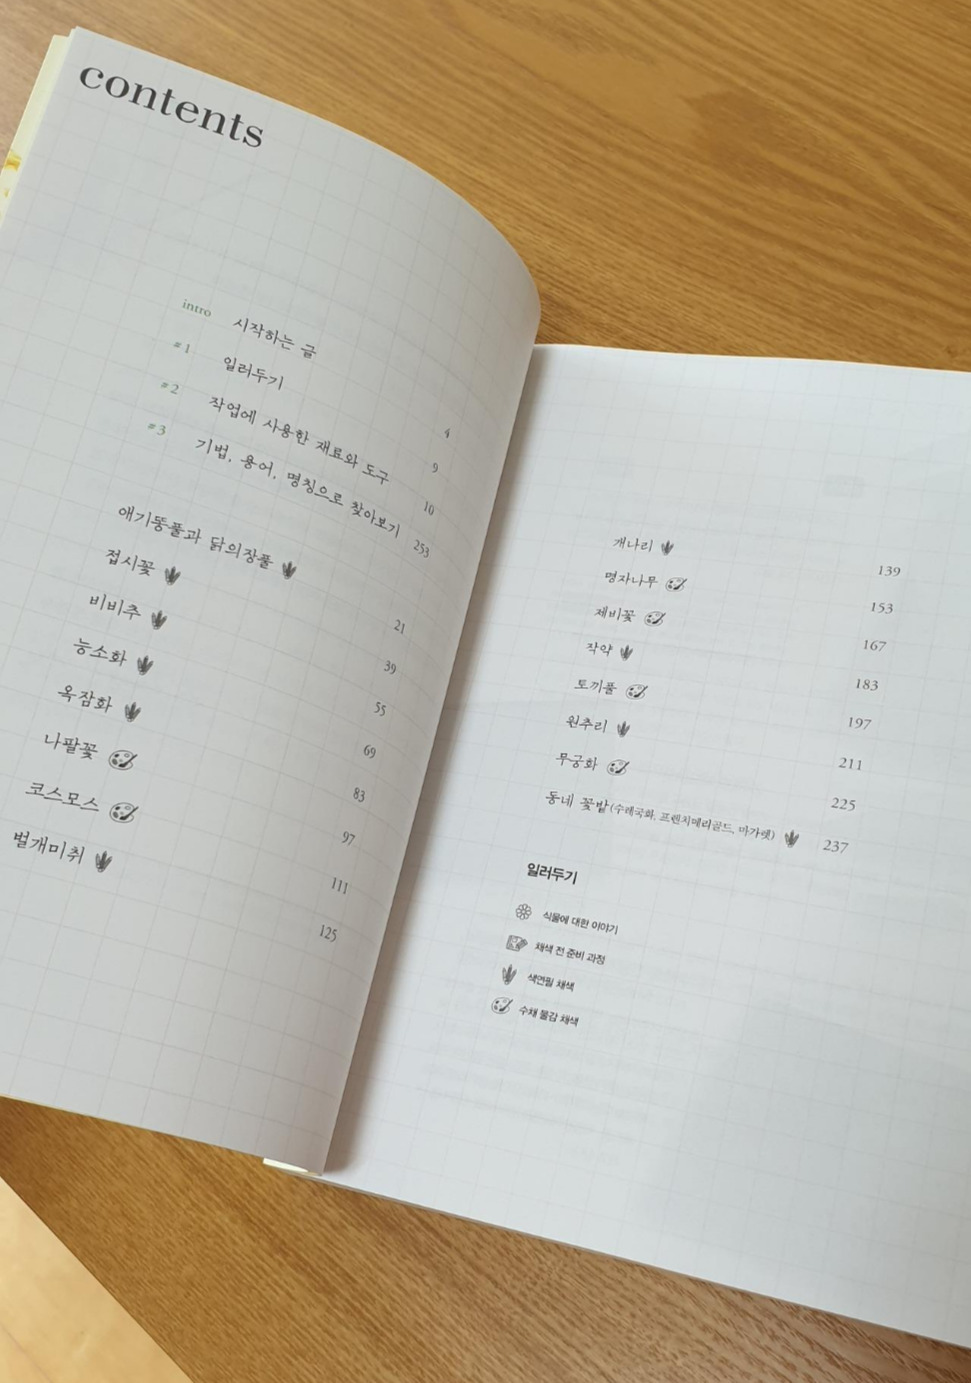 contents
intro 시작하는 글 4
#1 일러두기 9
#2 작업에 사용한 재료와 도구 10
#3 기법, 용어, 명칭으로 찾아보기 253
애기똥풀과 닭의장풀 21
접시꽃 39
비비추 55
능소화 69
옥잠화 83
나팔꽃 97
코스모스 111
벌개미취 125
개나리 139
명자나무 153
제비꽃 167
작약 183
토끼풀 197
원추리 211
무궁화 225
동네 꽃밭(수레국화, 프렌치메리골드, 마가렛) 237
일러두기
식물에 대한 이야기
채색 전 준비 과정
색연필 채색
수채 물감 채색